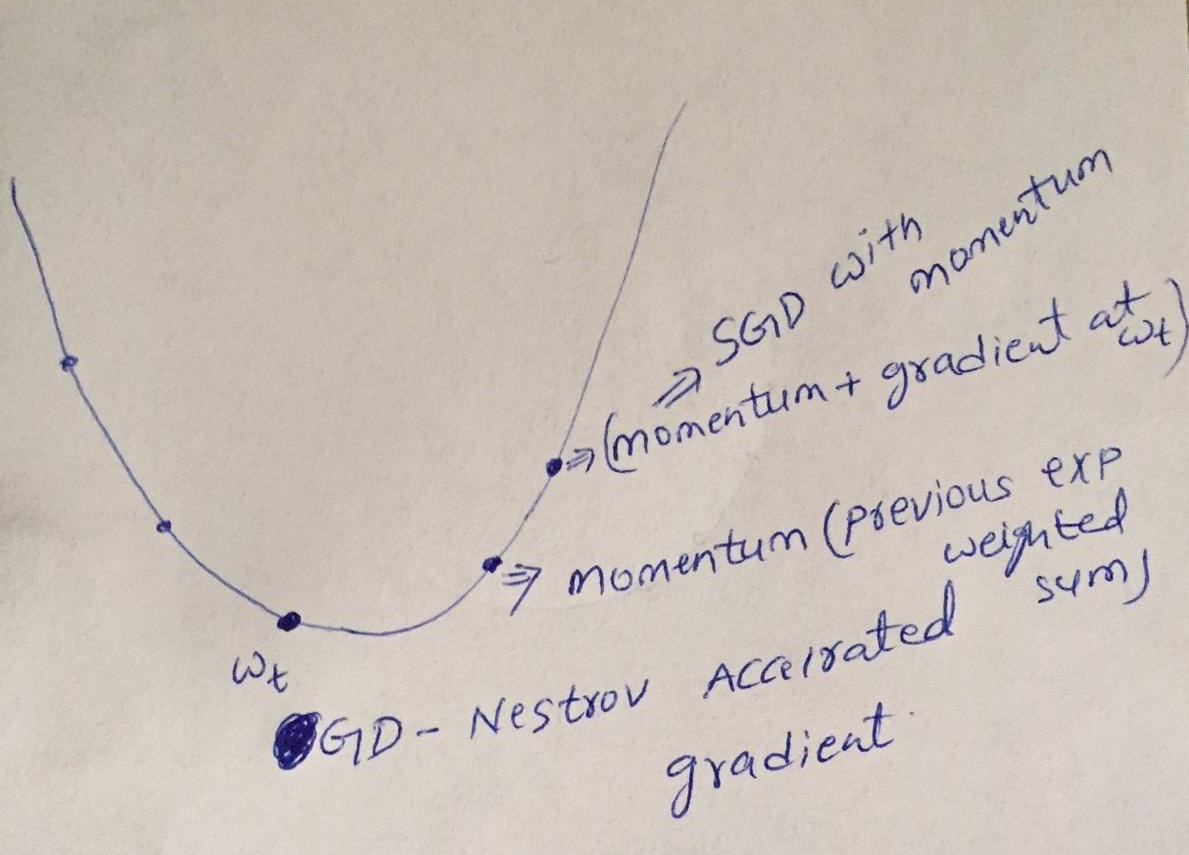 ⇒ SGD with
momentum
⇒ (momentum + gradient at
ωt)
⇒ momentum (previous exp
weighted
sum)
ωt
GD - Nestrov Accelrated
gradient